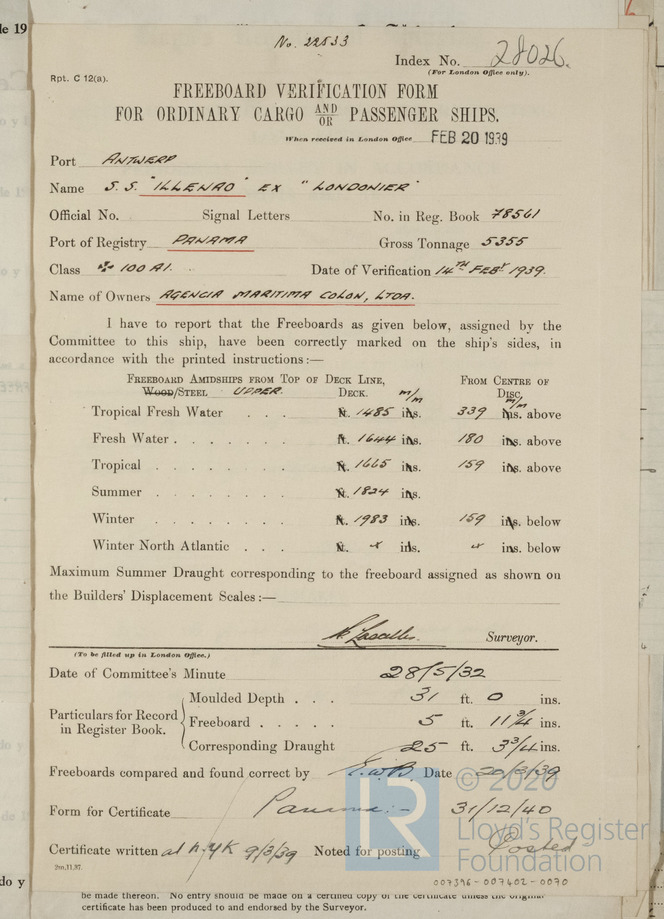 No. 22833
Index No. 28026.
(For London Office only).
Rpt. C 12(a).
FREEBOARD VERIFICATION FORM
FOR ORDINARY CARGO AND/OR PASSENGER SHIPS.
When received in London Office FEB 20 1939
Port ANTWERP
Name S.S. "ILLENAO" EX "LONDONIER"
Official No. Signal Letters No. in Reg. Book 78561
Port of Registry PANAMA Gross Tonnage 5355
Class ✠ 100 A1. Date of Verification 14TH FEBY 1939.
Name of Owners AGENCIA MARITIMA COLON, LTDA.
I have to report that the Freeboards as given below, assigned by the
Committee to this ship, have been correctly marked on the ship's sides, in
accordance with the printed instructions:—
FREEBOARD AMIDSHIPS FROM TOP OF DECK LINE, m/m FROM CENTRE OF
WOOD/STEEL UPPER. DECK. DISC. m/m
Tropical Fresh Water . . . ft. 1485 ins. 339 ins. above
Fresh Water . . . . . . ft. 1644 ins. 180 ins. above
Tropical . . . . . . . ft. 1665 ins. 159 ins. above
Summer . . . . . . . ft. 1824 ins.
Winter . . . . . . . ft. 1983 ins. 159 ins. below
Winter North Atlantic . . . ft. ins. ins. below
Maximum Summer Draught corresponding to the freeboard assigned as shown on
the Builders' Displacement Scales:—
Lascelles. Surveyor.
(To be filled up in London Office.)
Date of Committee's Minute 28/5/32
Particulars for Record in Register Book.
Moulded Depth . . . 31 ft. 0 ins.
Freeboard . . . . . 5 ft. 11 3/4 ins.
Corresponding Draught 25 ft. 3 3/4 ins.
Freeboards compared and found correct by E.W.B. Date 20/3/39
Form for Certificate Panama:- 31/12/40
Certificate written at N.YK 9/3/39 Noted for posting Posted
2m,11,37.
© 2020
LR
Lloyd's Register
Foundation
007396-007402-0070
be made thereon. No entry should be made on a certified copy of the certificate unless the original
certificate has been produced to and endorsed by the Surveyor.